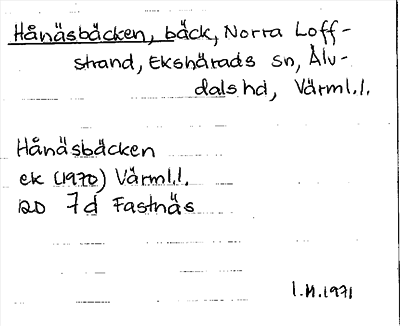 Hånäsbäcken, bäck, Norra Loff-
strand, Ekshärads sn, Älv-
dals hd, Värml.l.
Hånäsbäcken
ek (1970) Värml.l.
RD 7d Fastnäs
I.H.1971